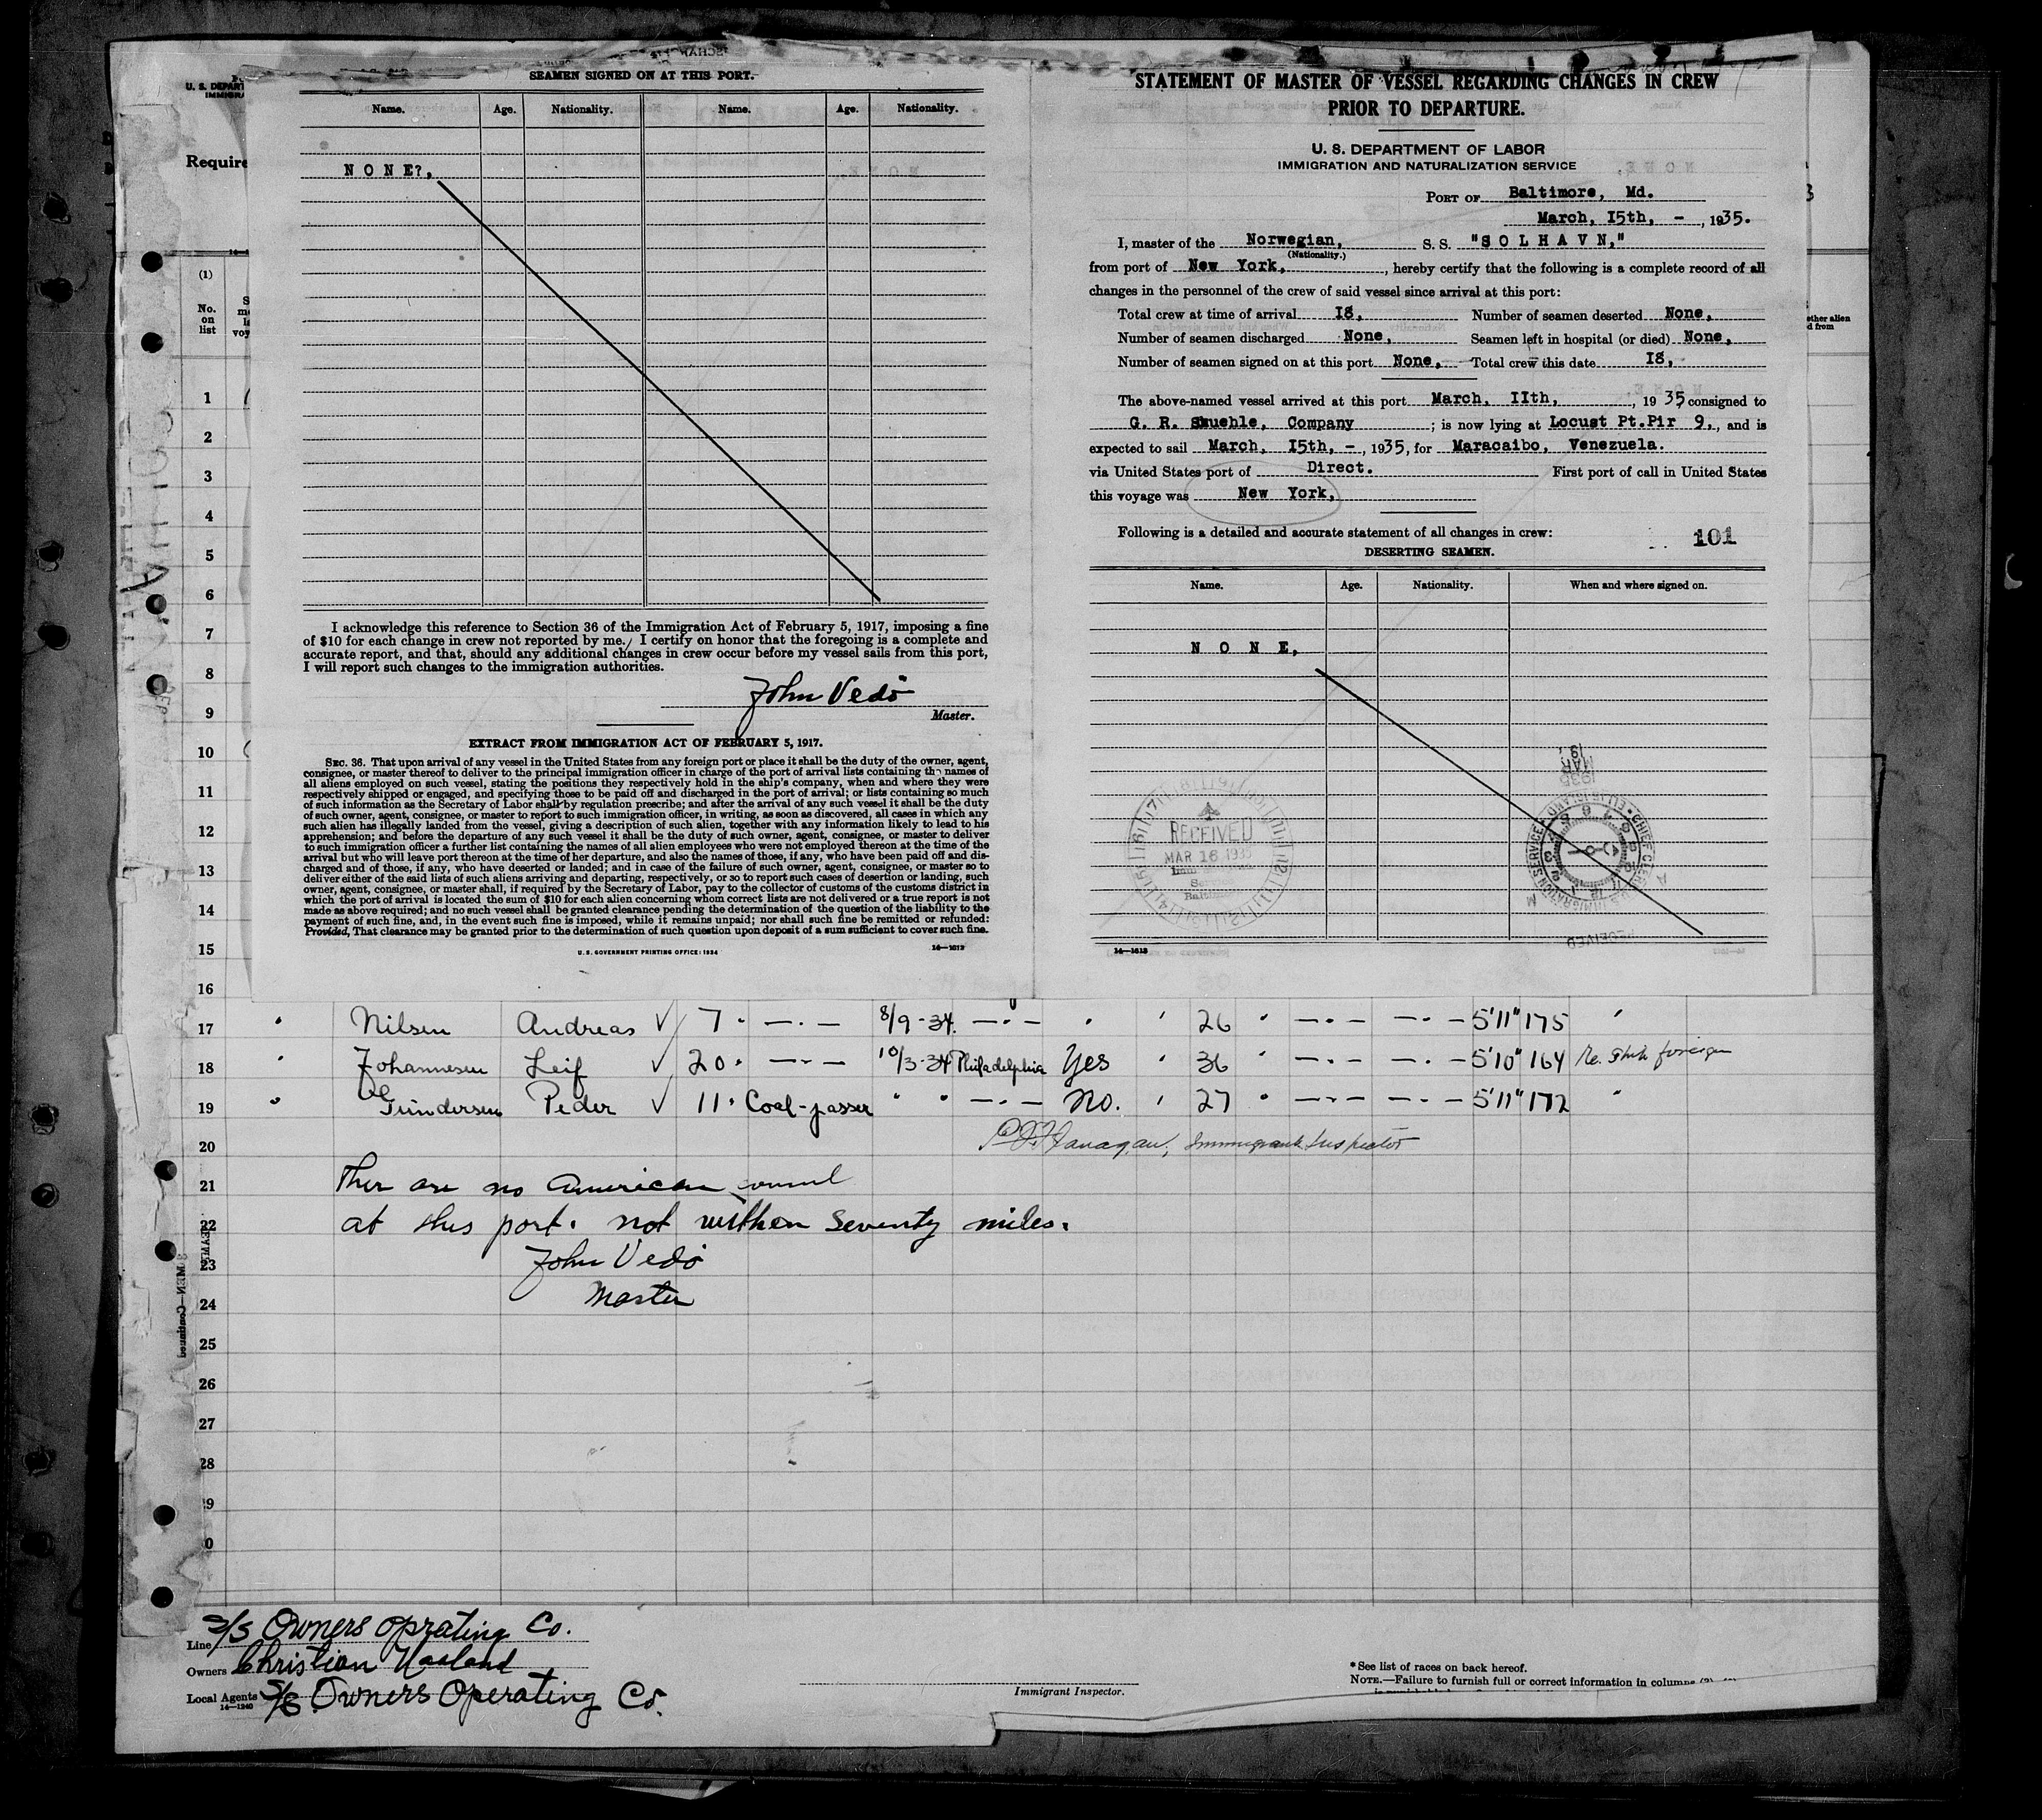 SEAMEN SIGNED ON AT THIS PORT.
Name. Age. Nationality. Name. Age. Nationality.
N O N E?,
I acknowledge this reference to Section 36 of the Immigration Act of February 5, 1917, imposing a fine
of $10 for each change in crew not reported by me. I certify on honor that the foregoing is a complete and
accurate report, and that, should any additional changes in crew occur before my vessel sails from this port,
I will report such changes to the immigration authorities.
John Vedö
Master.
EXTRACT FROM IMMIGRATION ACT OF FEBRUARY 5, 1917.
SEC. 36. That upon arrival of any vessel in the United States from any foreign port or place it shall be the duty of the owner, agent,
consignee, or master thereof to deliver to the principal immigration officer in charge of the port of arrival lists containing the names of
all aliens employed on such vessel, stating the positions they respectively hold in the ship's company, when and where they were
respectively shipped or engaged, and specifying those to be paid off and discharged in the port of arrival; or lists containing so much
of such information as the Secretary of Labor shall by regulation prescribe; and after the arrival of any such vessel it shall be the duty
of such owner, agent, consignee, or master to report to such immigration officer, in writing, as soon as discovered, all cases in which any
such alien has illegally landed from the vessel, giving a description of such alien, together with any information likely to lead to his
apprehension; and before the departure of any such vessel it shall be the duty of such owner, agent, consignee, or master to deliver
to such immigration officer a further list containing the names of all alien employees who were not employed thereon at the time of the
arrival but who will leave port thereon at the time of her departure, and also the names of those, if any, who have been paid off and dis-
charged and of those, if any, who have deserted or landed; and in case of the failure of such owner, agent, consignee, or master so to
deliver either of the said lists of such aliens arriving and departing, respectively, or so to report such cases of desertion or landing, such
owner, agent, consignee, or master shall, if required by the Secretary of Labor, pay to the collector of customs of the customs district in
which the port of arrival is located the sum of $10 for each alien concerning whom correct lists are not delivered or a true report is not
made as above required; and no such vessel shall be granted clearance pending the determination of the question of the liability to the
payment of such fine, and, in the event such fine is imposed, while it remains unpaid; nor shall such fine be remitted or refunded:
Provided, That clearance may be granted prior to the determination of such question upon deposit of a sum sufficient to cover such fine.
U. S. GOVERNMENT PRINTING OFFICE: 1934 14—1613
STATEMENT OF MASTER OF VESSEL REGARDING CHANGES IN CREW
PRIOR TO DEPARTURE.
U. S. DEPARTMENT OF LABOR
IMMIGRATION AND NATURALIZATION SERVICE
PORT OF Baltimore, Md.
March, I5th, - , 1935.
I, master of the Norwegian, S. S. "S O L H A V N,"
(Nationality.)
from port of New York, , hereby certify that the following is a complete record of all
changes in the personnel of the crew of said vessel since arrival at this port:
Total crew at time of arrival I8, Number of seamen deserted None,
Number of seamen discharged None, Seamen left in hospital (or died) None,
Number of seamen signed on at this port None, Total crew this date I8,
The above-named vessel arrived at this port March, IIth, , 1935 consigned to
G. R. Smuehle, Company ; is now lying at Locust Pt.Pir 9, , and is
expected to sail March, I5th, - , 1935, for Maracaibo, Venezuela.
via United States port of Direct. First port of call in United States
this voyage was New York,
Following is a detailed and accurate statement of all changes in crew: 101
DESERTING SEAMEN.
Name. Age. Nationality. When and where signed on.
N O N E,
RECEIVED
MAR 16 1935
14—1613
U. S. DEPART
IMMIGRA
Require
(1)
No. on list
1
2
3
4
5
6
7
8
9
10
11
12
13
14
15
16
17 " Nilsen Andreas √ 7 " — " — 8/9-34. — " — " " 26 " — " — — " — 5'11" 175 "
18 " Johannesen Leif √ 20 " — " — 10/3-34 Philadelphia Yes " 36 " — " — — " — 5'10" 164 Re. Shik foreign
19 " Gundersen Peder √ 11 " Coal-passer " " — " — No. " 27 " — " — — " — 5'11" 172 "
20 P. J. Flanagan, Immigrant Inspector
21 Ther are no American consul
22 at this port. not withen seventy miles.
23 John Vedö
24 Master
25
26
27
28
29
30
Line S/S Owners oprating Co.
Owners Christian Haaland
Local Agents S/S Owners Operating Co.
14—1240
Immigrant Inspector.
* See list of races on back hereof.
NOTE.—Failure to furnish full or correct information in columns